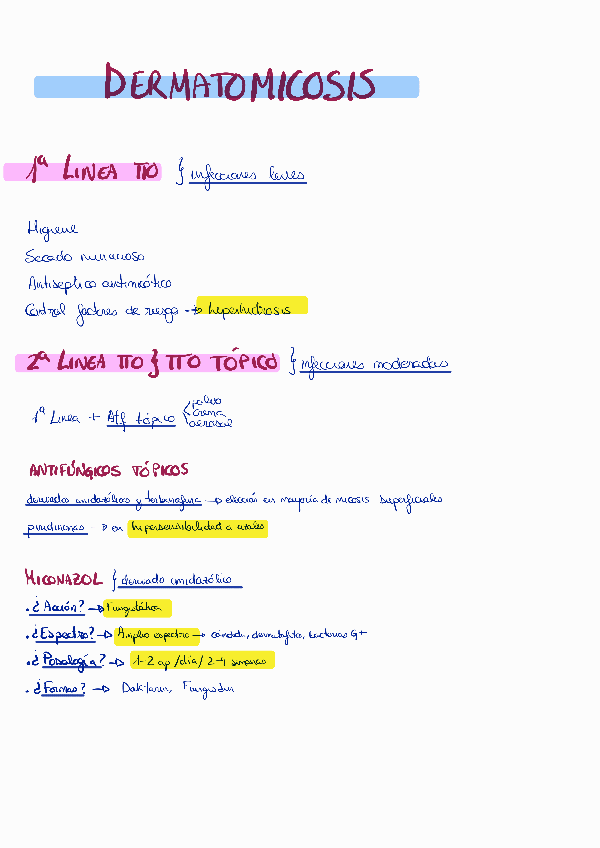 DERMATOMICOSIS
1ª LINEA TTO } infecciones leves
Higiene
Secado minucioso
Antiseptico antimicótico
Control factores de riesgo → hiperhidrosis
2ª LINEA TTO } TTO TÓPICO } infecciones moderadas
1ª Linea + Atf tópico < polvo
crema
aerosol
ANTIFÚNGICOS TÓPICOS
derivados imidazólicos y terbinafina → elección en mayoría de micosis superficiales
piridinonas → en hipersensibilidad a azoles
MICONAZOL { derivado imidazólico
· ¿Acción? → Fungistática
· ¿Espectro? → Amplio espectro → cándida, dermatofitos, bacterias G+
· ¿Posología? → 1-2 ap/día/2-4 semanas
· ¿Formas? → Daktarin,